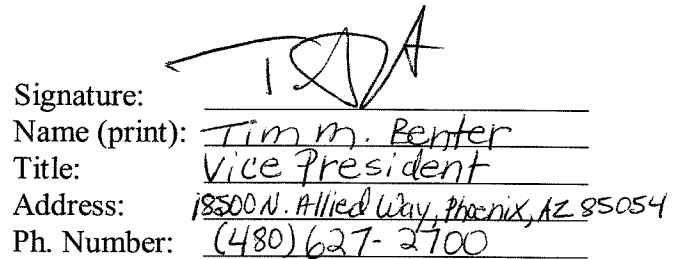 Signature:
Name (print): Tim M. Benter
Title: Vice President
Address: 18500 N. Allied Way, Phoenix, AZ 85054
Ph. Number: (480) 627-2700